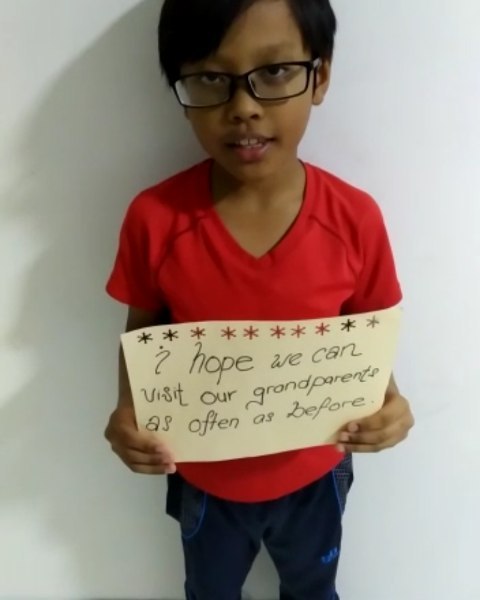 * * * * * * * * * *
i hope we can
visit our grandparents
as often as before.